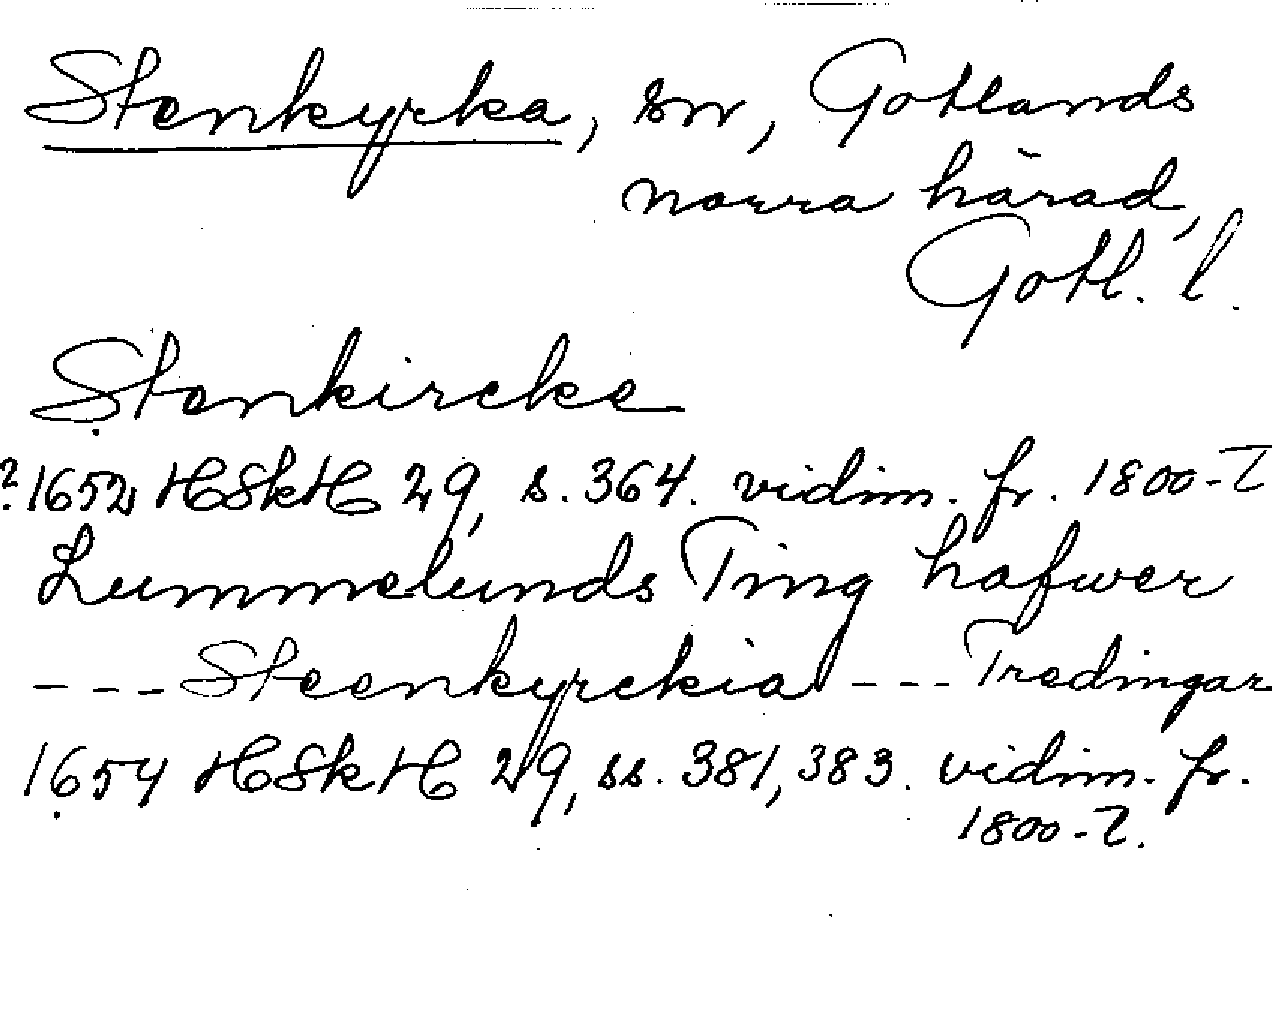 Stenkyrka, sn, Gotlands
norra härad,
Gotl. l.
Stenkircke
? 1652 HSkH 29, s. 364. vidim. fr. 1800-t
Lummelunds Ting hafwer
--- Steenkyrckia --- Tredingar
1654 HSkH 29, ss. 381, 383. vidim. fr.
1800-t.